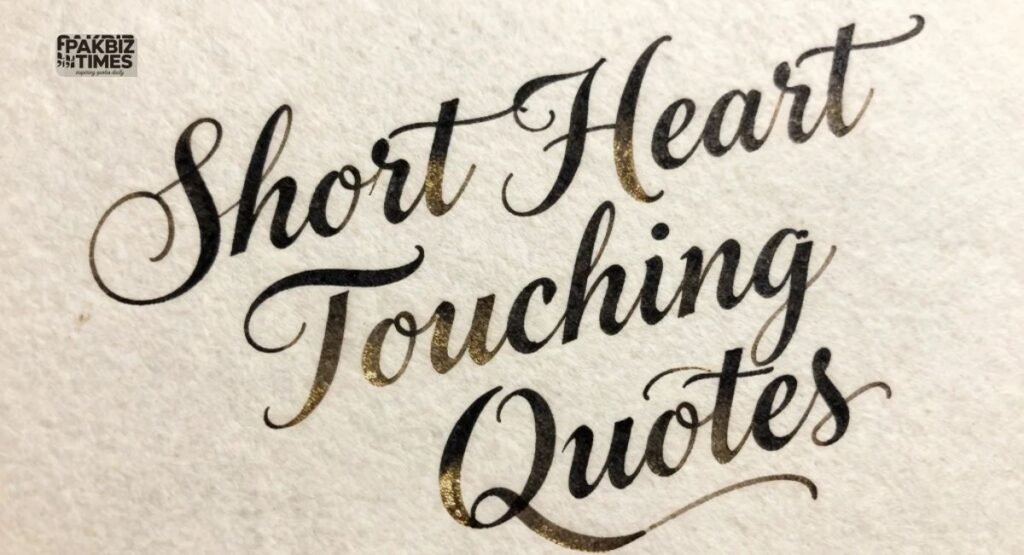 PAKBIZ
TIMES
inspiring quotes daily
Short Heart
Touching
Quotes